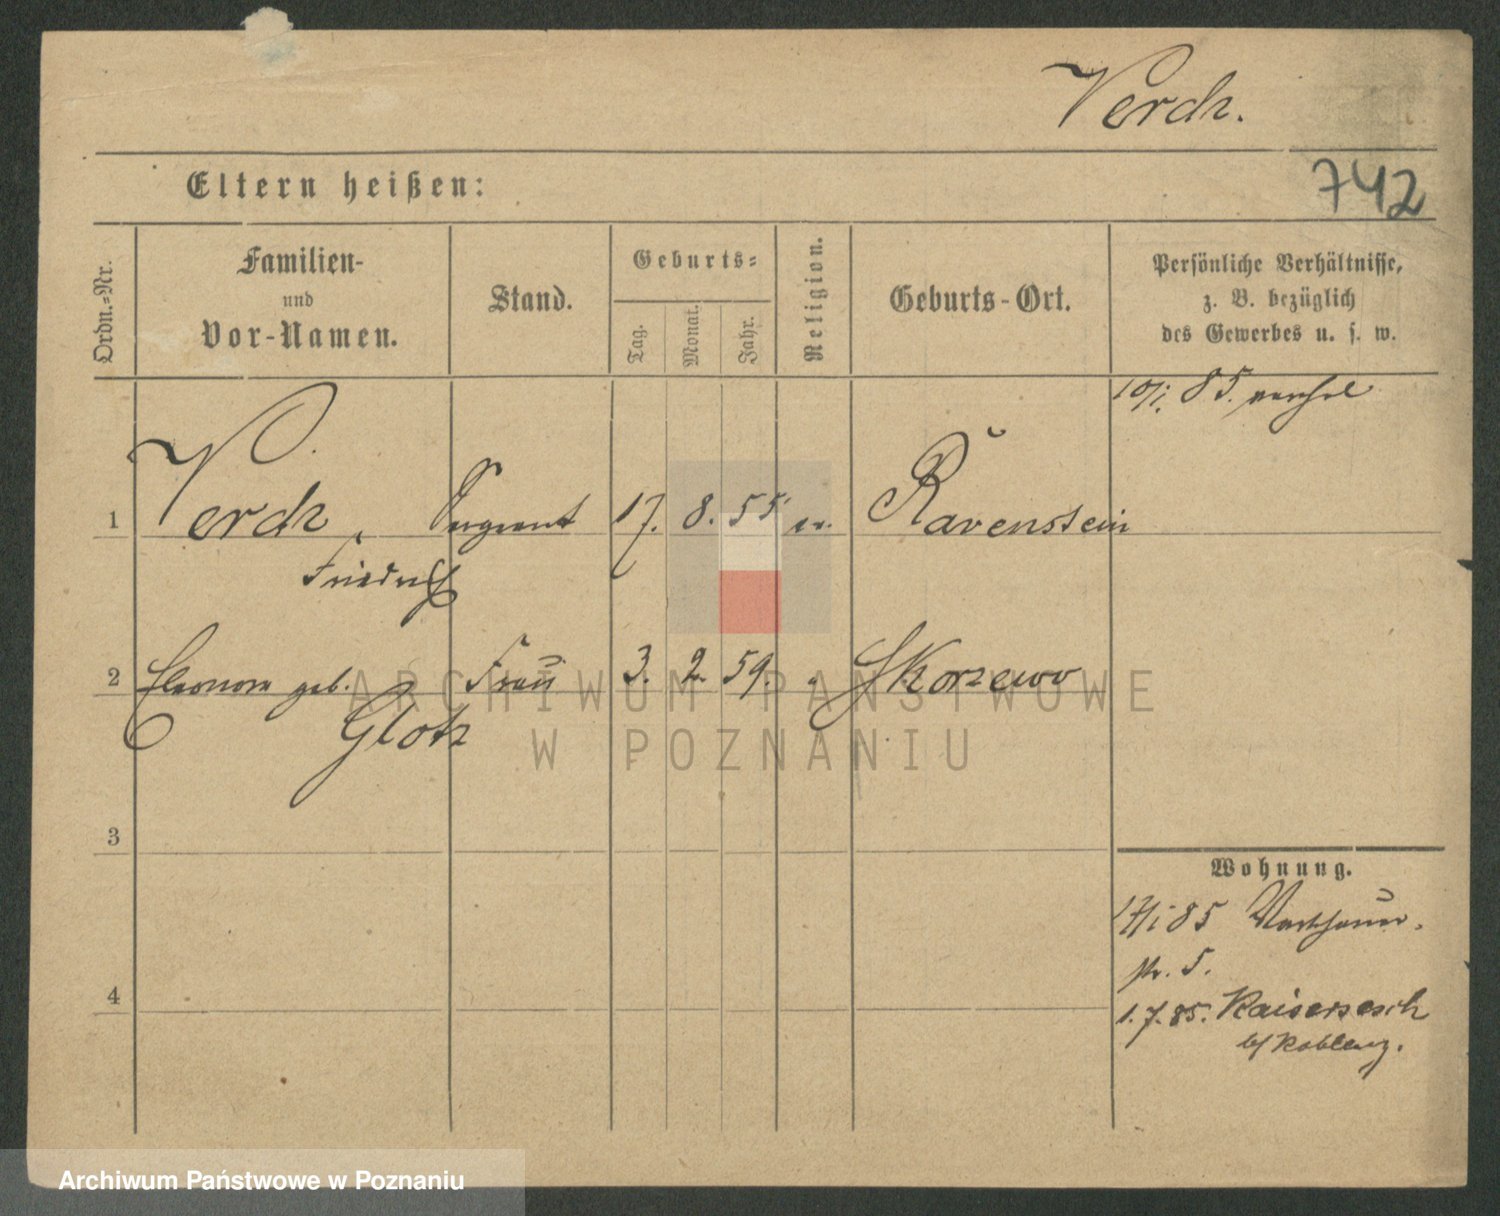 Verch.
742
Eltern heißen:
Ordn.=Nr.
Familien-
und
Vor-Namen.
Stand.
Geburts=
Tag.
Monat.
Jahr.
Religion.
Geburts-Ort.
Persönliche Verhältnisse,
z. B. bezüglich
des Gewerbes u. s. w.
10/1. 85.
1 Verch, Sergeant 17. 8. 55 ev. Ravenstein
Friedrich
2 Eleonore geb. Frau 3. 2. 59. " Skorzewo
Glotz
ARCHIWUM PAŃSTWOWE
W POZNANIU
3
Wohnung.
17/1 85
str. 5.
4
1.7.85. Kaisersesch
b/ Koblenz.
Archiwum Państwowe w Poznaniu